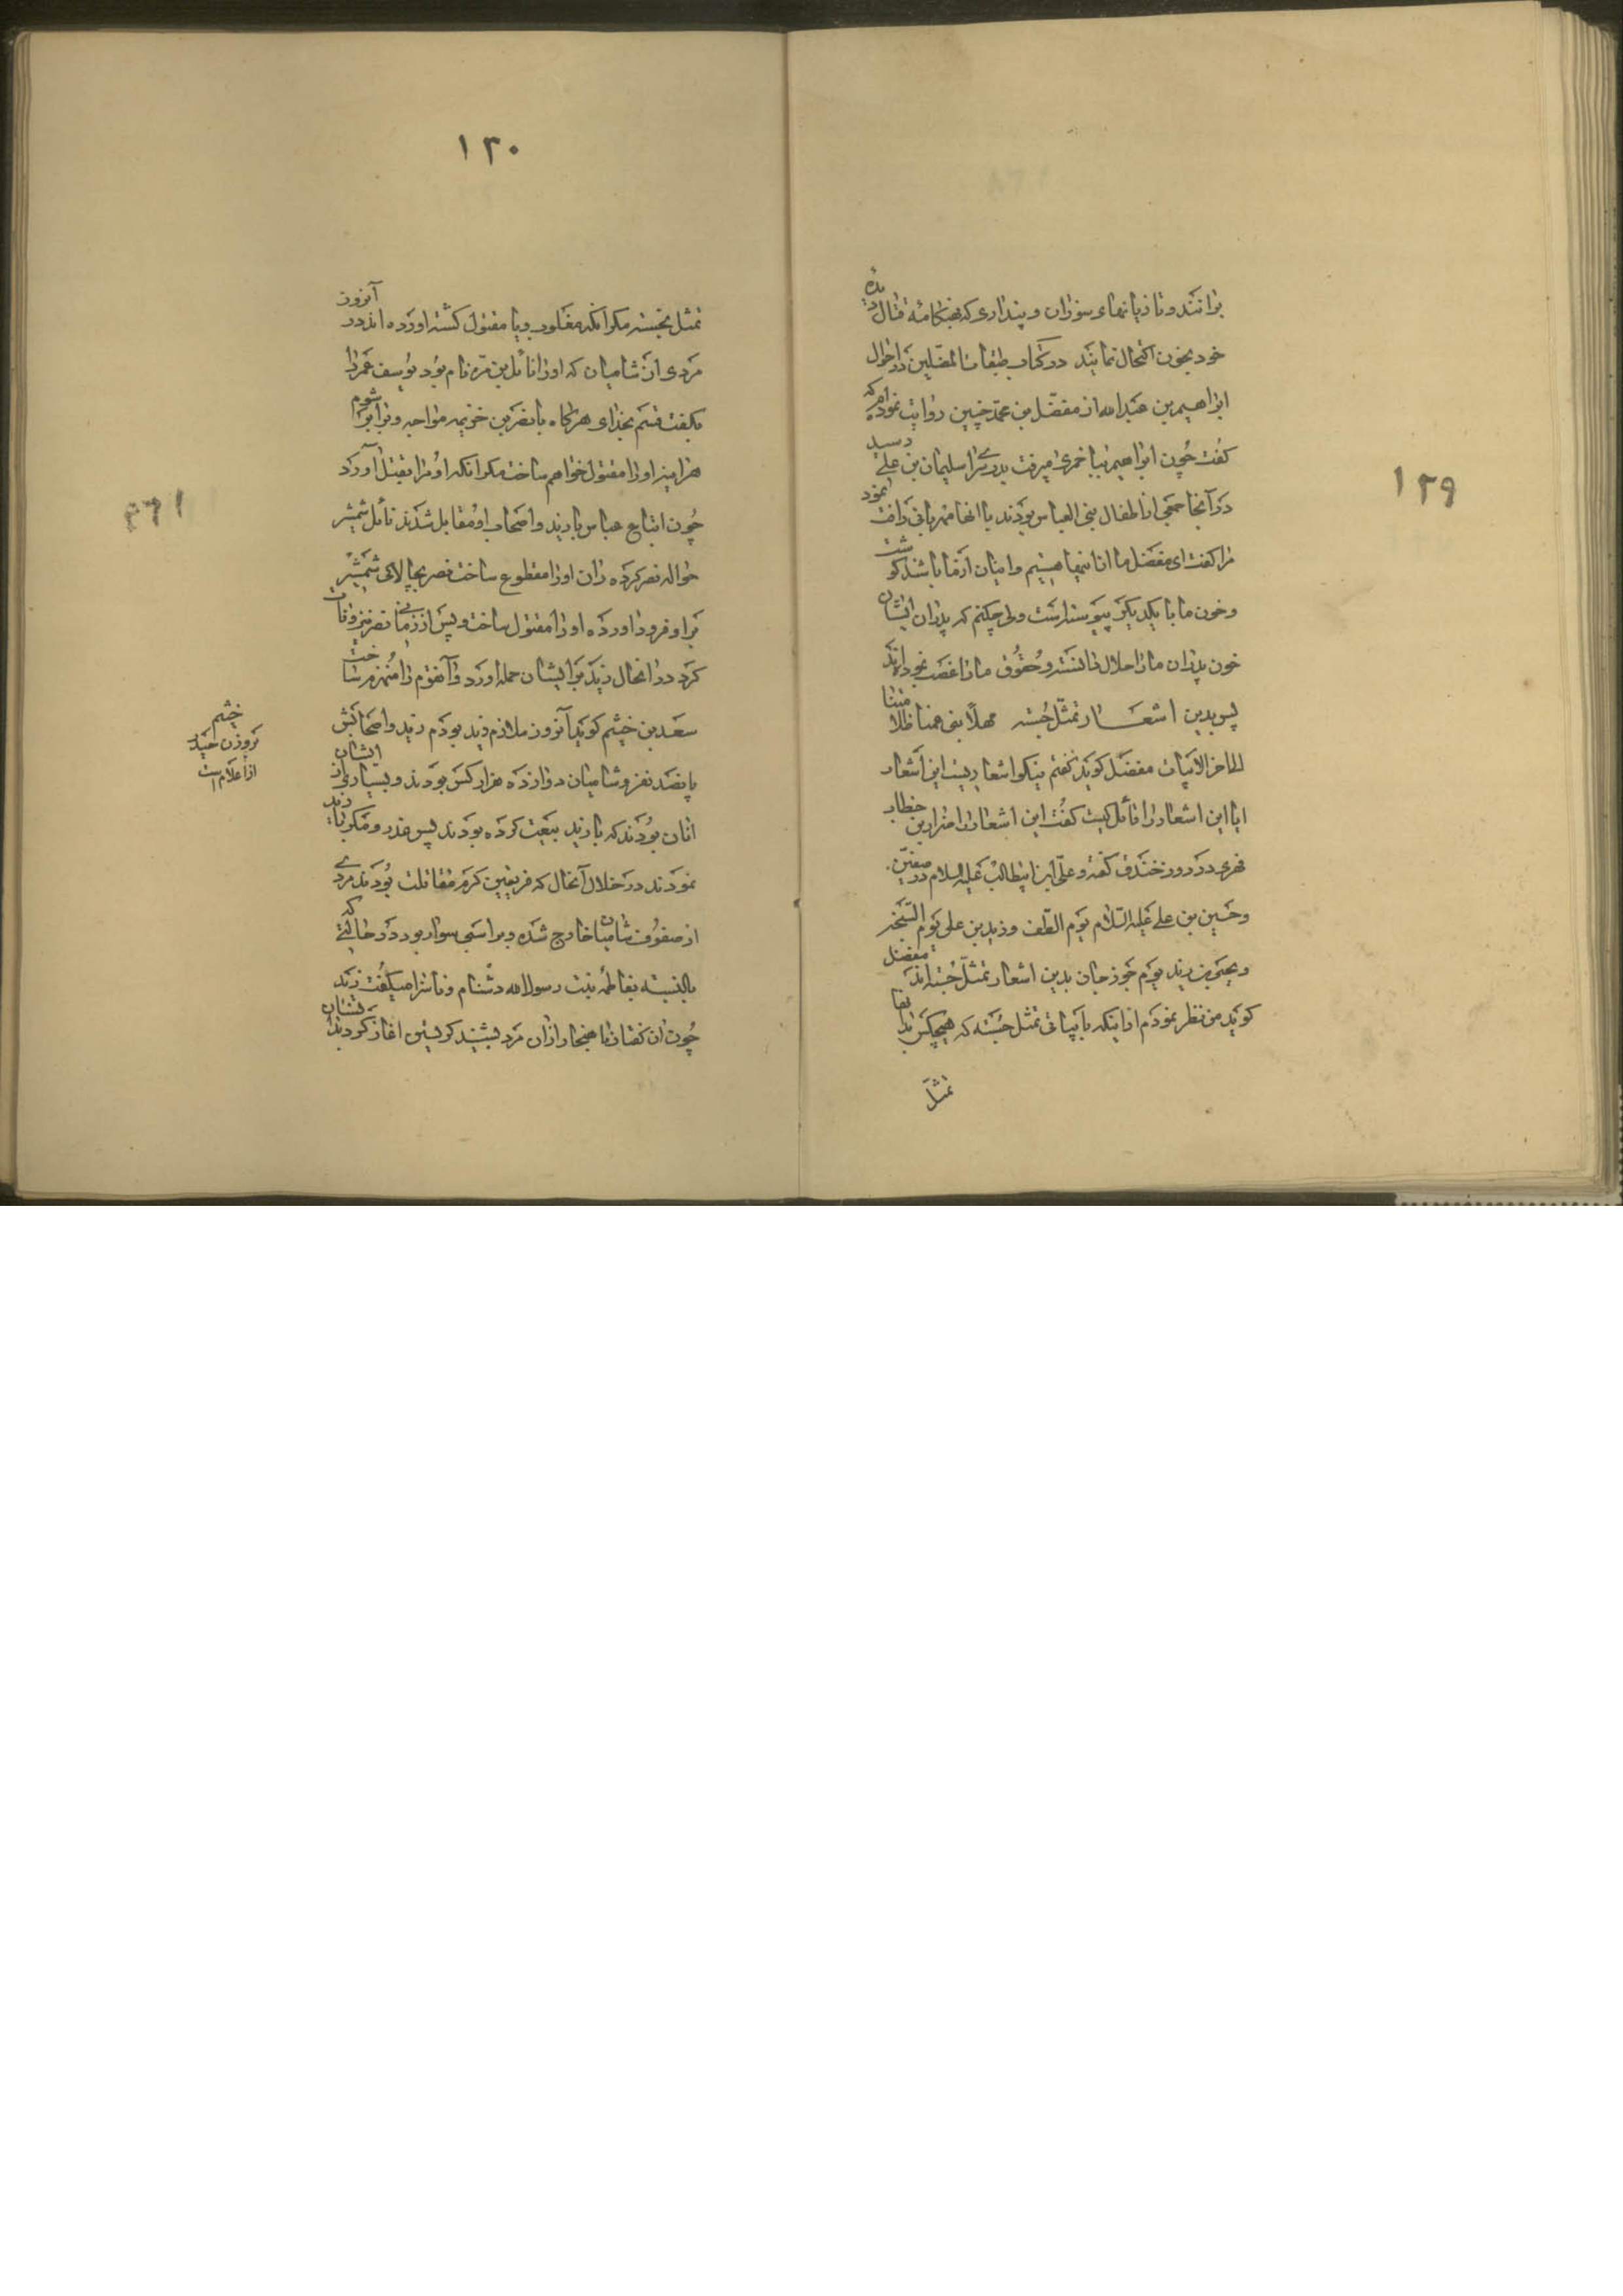 ١٢٩
برانند و تازیانهای سوزان و پنداری که هنگامهٔ قتال دیدهٔ
خود بخون اکتحال نمایند در کتاب طبقات المضلین در احوال
ابراهیم بن عبدالله از مفضل بن محمد چنین روایت نموده که
کفت چون ابراهیم بباخمری میرفت بدر سرا سلیمان بن علی رسید
در آنجا جمعی از اطفال بنی العباس بودند باانها مهربانی رافت نمود
مرا کفت ای مفضل ما از اینها هستیم و اینان از ما باشند کوشت
و خون ما با یکدیکر پیوسته است ولی چکنم که پدران ایشان
خون پدران ما را حلال دانسته و حقوق ما را غصب نموده اند
پس بدین اشعار تمثل جسته مهلًا بنی عمنا ظلامتنا
الی اخر الابیات مفضل کوید کفتم نیکو اشعاریست این اشعار
ایا این اشعار را قائل کیست کفت این اشعار را ضرار بن خطاب
فهری در روز خندق کفته و علی ابن ابیطالب علیه السلام در صفین
و حسین بن علی علیه السلام یوم الطف و زید بن علی یوم السبخه
و یحیی بن زید یوم جوزجان بدین اشعار تمثل جسته اند مفضل
کوید من تطیر نمودم از اینکه بابیاتی تمثل جسته که هیچکس بدانها
تمثل
١٣٠
تمثل نجسته مکر آنکه مغلوب و یا مقتول کشته اورده اند در آنروز
مردی از شامیان که اورا نائل بن مره نام بود یوسف عمر را
بکفت قسم بخدای هرکاه با نصر بن خزیمه مواجه و برابر شوم
هراینه اورا مقتول خواهم ساخت مکر آنکه او مرا بقتل آورد
چون اتباع عباس با زید و اصحاب او مقابل شدند نائل شمشیر
حواله نصر کرده ران اورا مقطوع ساخت نصر بچالاکی شمشیر
براو فرود اورده اورا مقتول ساخت و پس از زمانی نصر نیز وفات
کرد در انحال زید برایشان حمله اورد و آنقوم را منهزم ساخت
سعد بن خیثم کوید آنروز ملازم زید بودم زید و اصحابش
پانصد نفر و شامیان دوازده هزار کس بودند و بسیاری از ایشان
انان بودند که با زید بیعت کرده بودند پس غدر و مکر با زید
نمودند در خلال آنحال که فریقین کرم مقاتلت بودند مردی
از صفوف شامیان خارج شده و بر اسبی سوار بود در حالتی که
بالنسبة بفاطمه بنت رسول الله دشنام و ناسزا میکفت زید
چون ان کفتار ناهنجار از ان مرد بشنید کریستن اغاز کرد بدانسان
خیثم
بروزن حیدر
از اعلام است